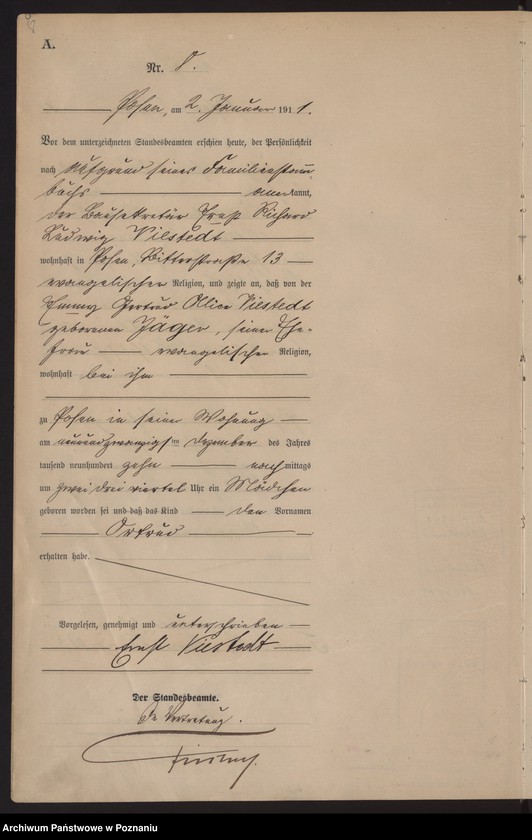 A.
Nr. 8.
Posen, am 2. Januar 1911.
Vor dem unterzeichneten Standesbeamten erschien heute, der Persönlichkeit
nach aufgrund seines Familienstamm-
buchs anerkannt,
der Bausekretär Ernst Richard
Ludwig Vilstedt
wohnhaft in Posen, Ritterstraße 13
evangelischer Religion, und zeigte an, daß von der
Emmy Gertrud Alice Vilstedt
geborenen Jäger, seiner Ehe-
frau evangelischer Religion,
wohnhaft bei ihm
zu Posen in seiner Wohnung
am neunundzwanzigsten Dezember des Jahres
tausend neunhundert zehn nachmittags
um zwei drei viertel Uhr ein Mädchen
geboren worden sei und daß das Kind den Vornamen
Ortrud
erhalten habe.
Vorgelesen, genehmigt und unterschrieben
Ernst Vilstedt
Der Standesbeamte.
In Vertretung.
Archiwum Państwowe w Poznaniu